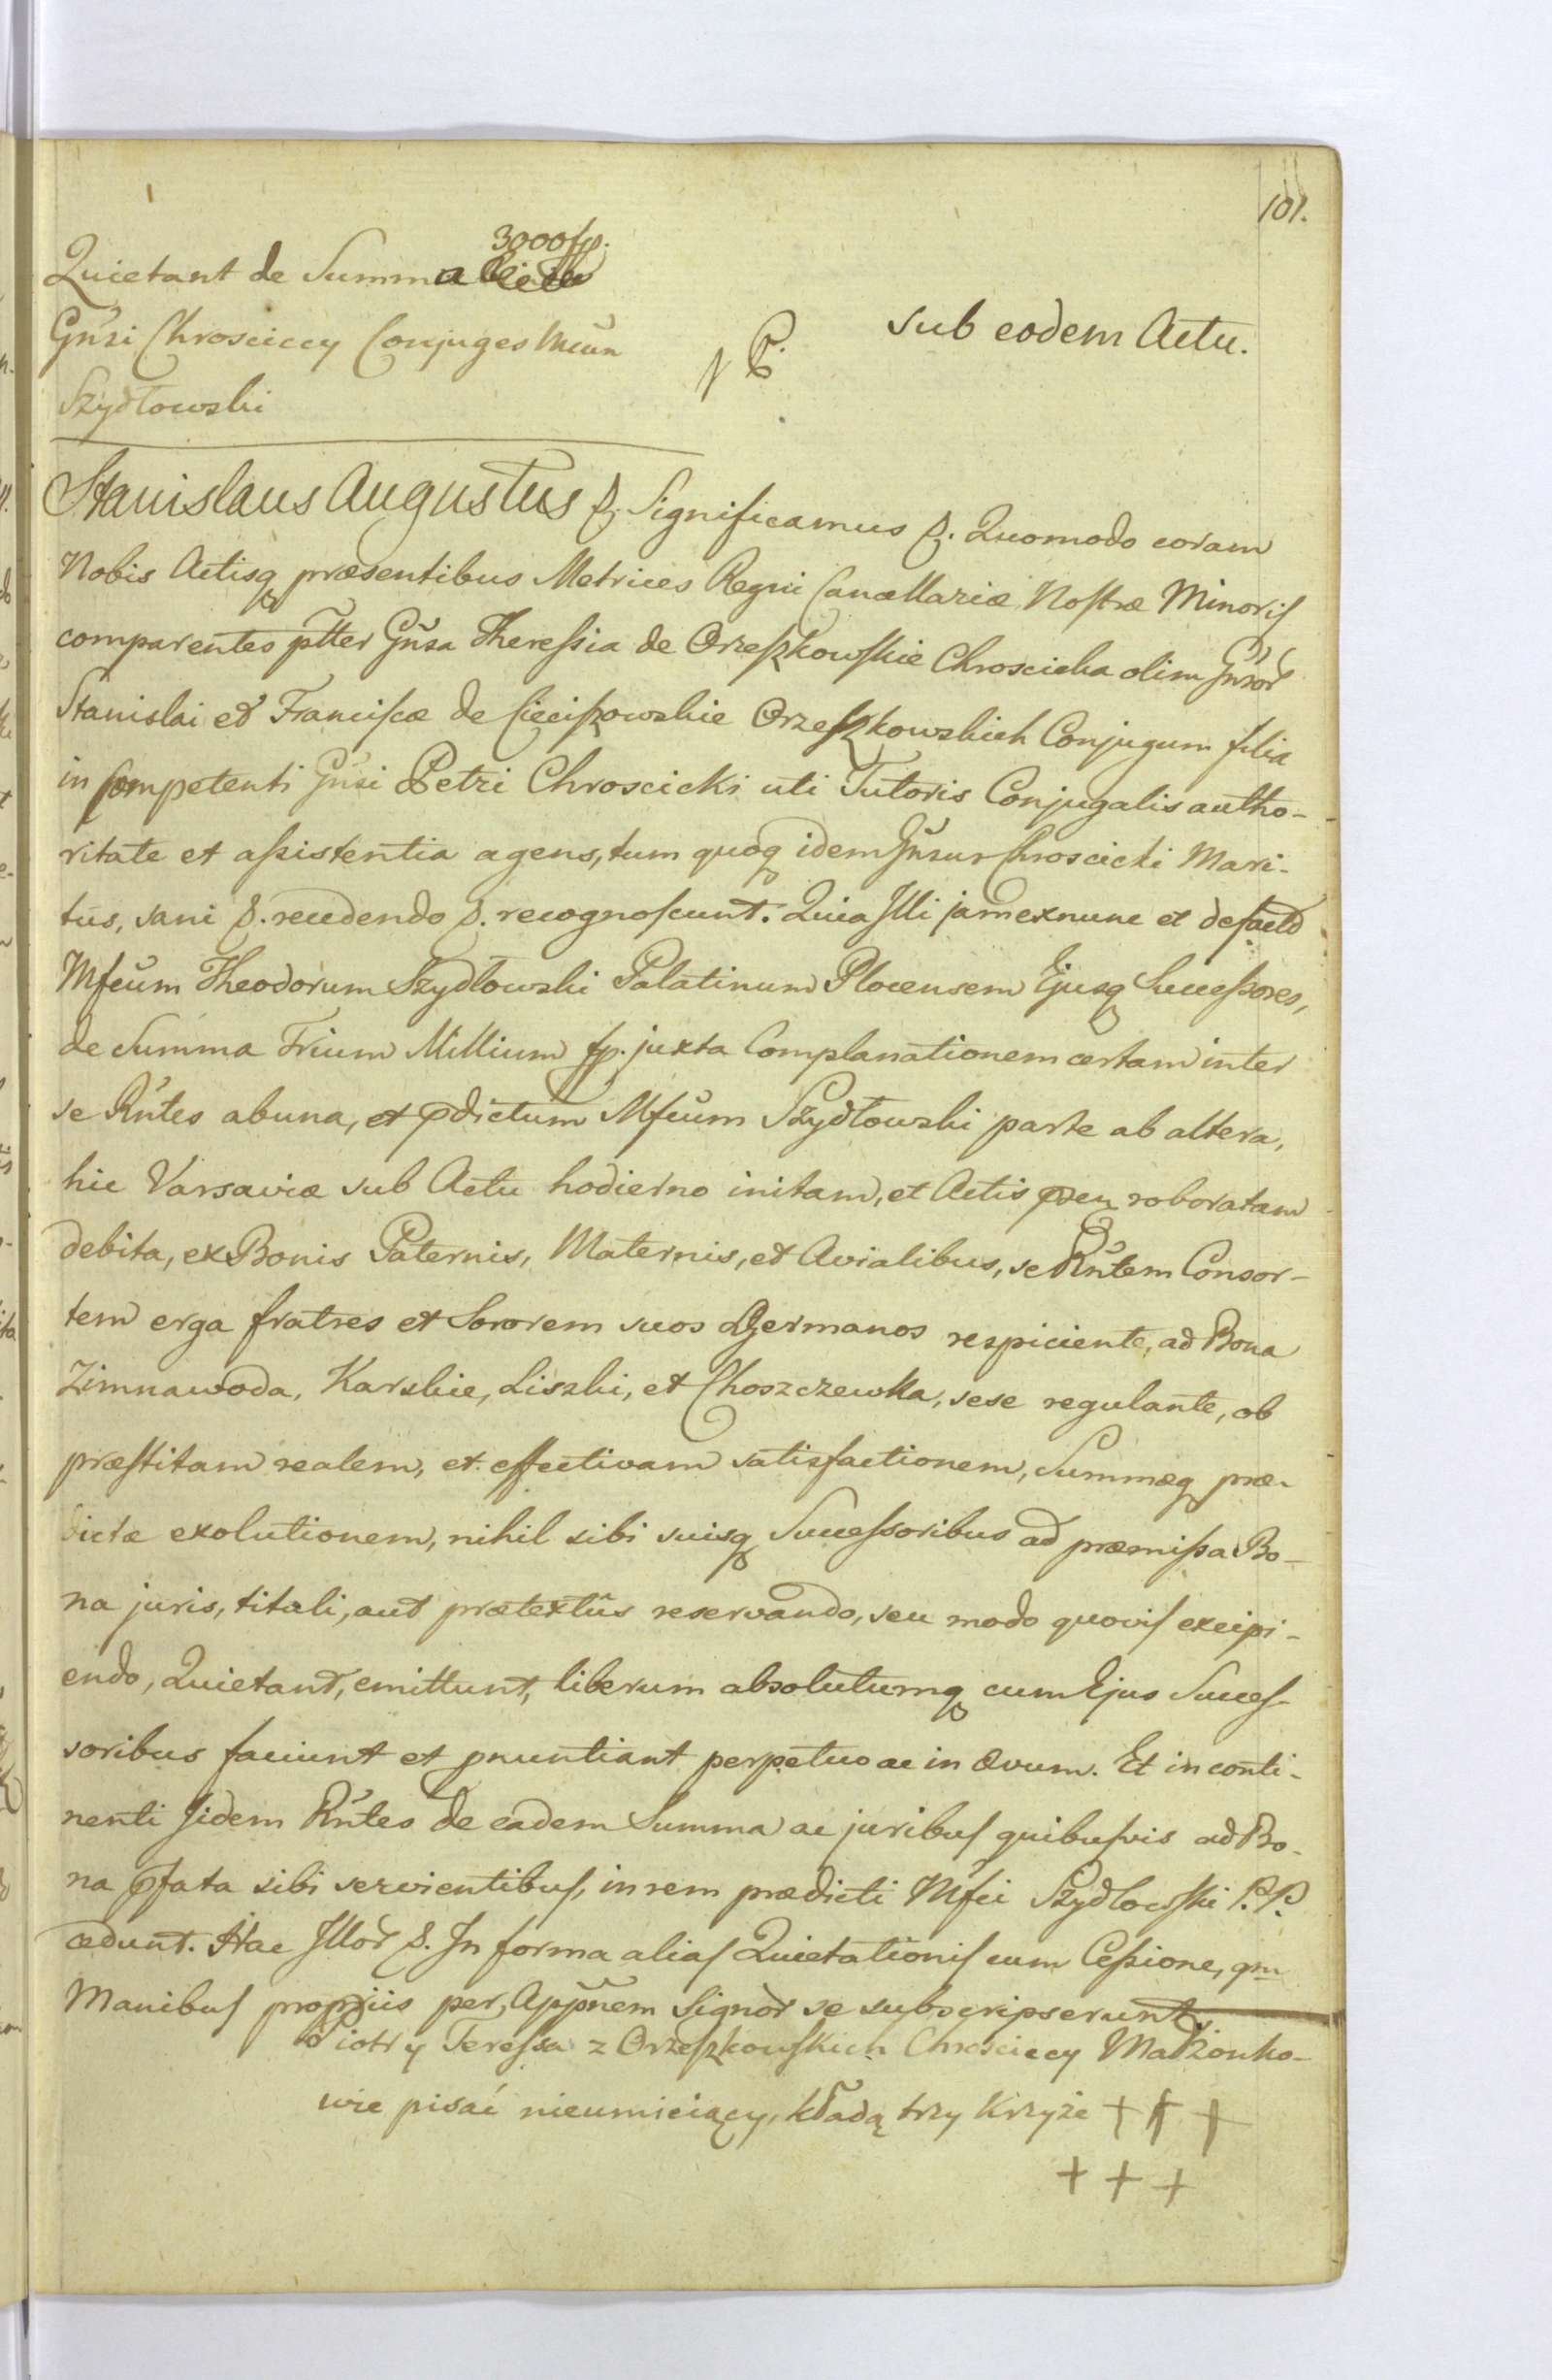 101.
3000 fp.
Quietant de Summa
Gnsi Chrosciccy Conjuges Mcum
Szydłowski
Sub eodem Actu.
Stanislaus Augustus &. Significamus &. Quomodo coram
Nobis Actisq præsentibus Metrices Regni Cancellariæ Nostræ Minoris
comparentes ptter Gnsa Theressia de Orzeszkowskie Chroscicka olim Gnsor
Stanislai et Franciscæ de Cieciszowskie Orzeszkowskich Conjugum filia
in competenti Gnsi Petri Chroscicki uti Tutoris Conjugalis autho-
ritate et assistentia agens, tum quoq idem Gnsus Chroscicki Mari-
tus, sani &. recedendo &. recognoscunt. Quia Illi jam exnunc et defacto
Mfcum Theodorum Szydłowski Palatinum Plocensem Ejusq Successores,
de Summa Trium Millium fp. juxta Complanationem certam inter
se Rntes ab una, et pdictum Mfcum Szydłowski parte ab altera,
hic Varsaviæ sub Actu hodierno initam, et Actis roboratam
debita, ex Bonis Paternis, Maternis, et Avialibus, se Rntem Consor-
tem erga fratres et Sororem suos Germanos respiciente, ad Bona
Zimnawoda, Karskie, Liszki, et Choszczewka, sese regulante, ob
præstitam realem, et effectivam satisfactionem, Summæq præ-
dictæ exolutionem, nihil sibi suisq Successoribus ad præmissa Bo-
na juris, tituli, aut prætextûs reservando, seu modo quovis excipi-
endo, Quietant, emittunt, liberum absolutumq cum Ejus Succes-
soribus faciunt et pnuntiant perpetuo ac in ævum. Et in conti-
nenti Iidem Rntes de eadem Summa ac juribus quibusvis ad Bo-
na pfata sibi servientibus, in rem prædicti Mfci Szydłowski P. P.
cedunt. Hac Illor &. In forma alias Quietationis cum Cessione, qm
Manibus propriis per Appnem Signor se subscripserunt.
Piotr y Teressa z Orzeszkowskich Chrosciccy Małżonko-
wie pisać nieumieiący, kładą trzy Krzyże + + +
+ + +